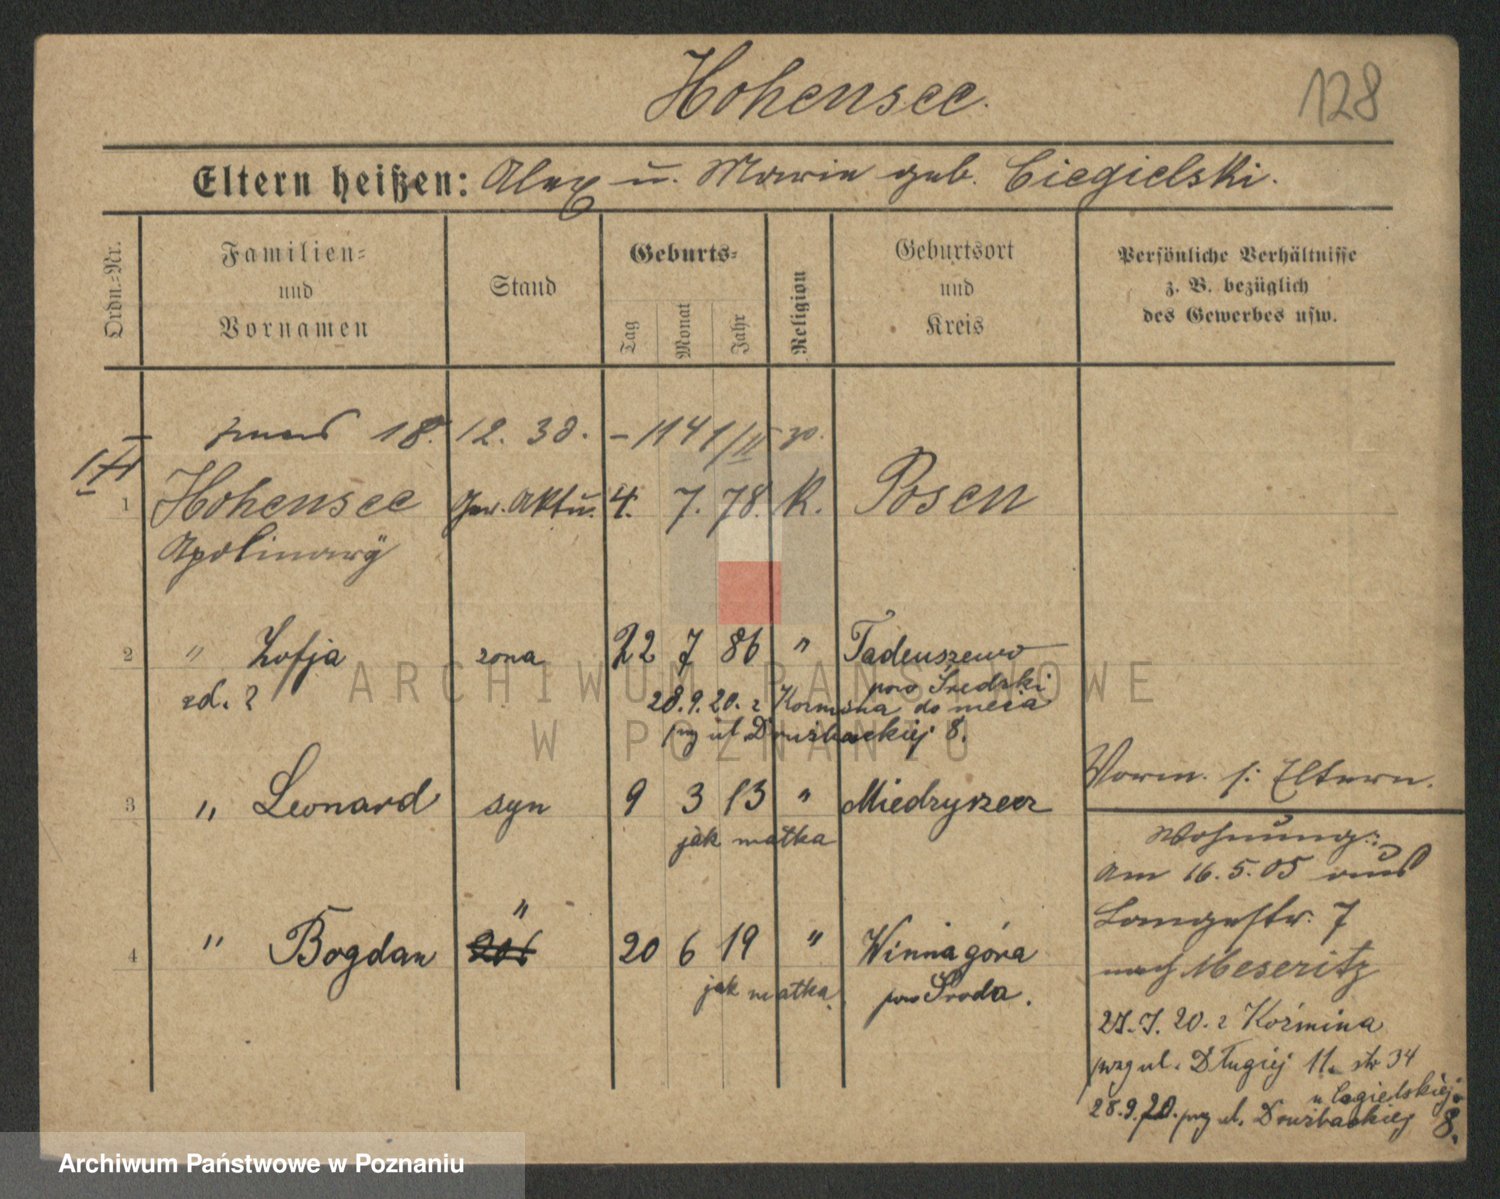 Hohensee.
128
Eltern heißen: Alex u. Marie geb. Ciegielski.
Ordn.-Nr.
Familien- und Vornamen
Stand
Geburts-
Tag
Monat
Jahr
Religion
Geburtsort und Kreis
Persönliche Verhältnisse z. B. bezüglich des Gewerbes usw.
18. 12. 38. -1141/II
1 Hohensee Ger. Aktu. 4. 7. 78. k. Posen
Apolinary
2 " Zofja żona 22 7 86 " Tadeuszewo
pow Średzki
zd. z 28.9.20. z Koźmina do męża
ul Drużbackiej 8.
3 " Leonard syn 9 3 13 " Miedzyrzecz
jak matka
4 " Bogdan " 20 6 19 " Winnagóra
jak matka pow Środa.
Vorm. s: Eltern.
Wohnung:
Am 16.5.05 aus
Langestr. 7
nach Meseritz
27.7.20. z Koźmina
przy ul. Długiej 11. str 34
u Cegielskiej
28.9.20. przy ul. Drużbackiej 8.
ARCHIWUM PAŃSTWOWE
W POZNANIU
Archiwum Państwowe w Poznaniu